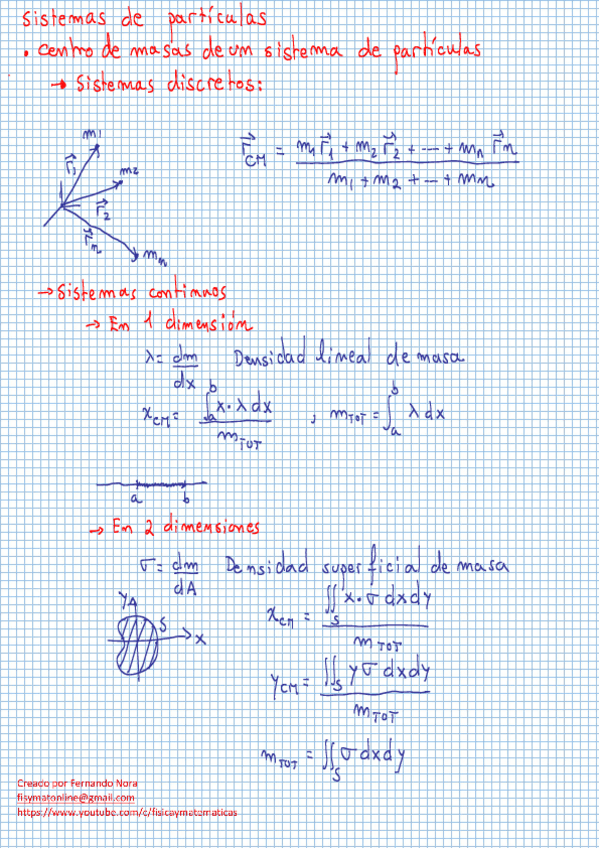 sistemas de partículas
• centro de masas de un sistema de partículas
→ Sistemas discretos:
m1
r⃗1
m2
r⃗2
r⃗n
mn
r⃗CM = (m1 r⃗1 + m2 r⃗2 + --- + mn r⃗n) / (m1 + m2 + --- + mn)
→ Sistemas continuos
→ En 1 dimensión
λ = dm/dx Densidad lineal de masa
xCM = ∫ab x·λ dx / mTOT , mTOT = ∫ab λ dx
a b
→ En 2 dimensiones
σ = dm/dA Densidad superficial de masa
Y
S
X
xCM = ∬S x·σ dxdy / mTOT
yCM = ∬S yσ dxdy / mTOT
mTOT = ∬S σ dxdy
Creado por Fernando Nora
fisymatonline@gmail.com
https://www.youtube.com/c/fisicaymatematicas